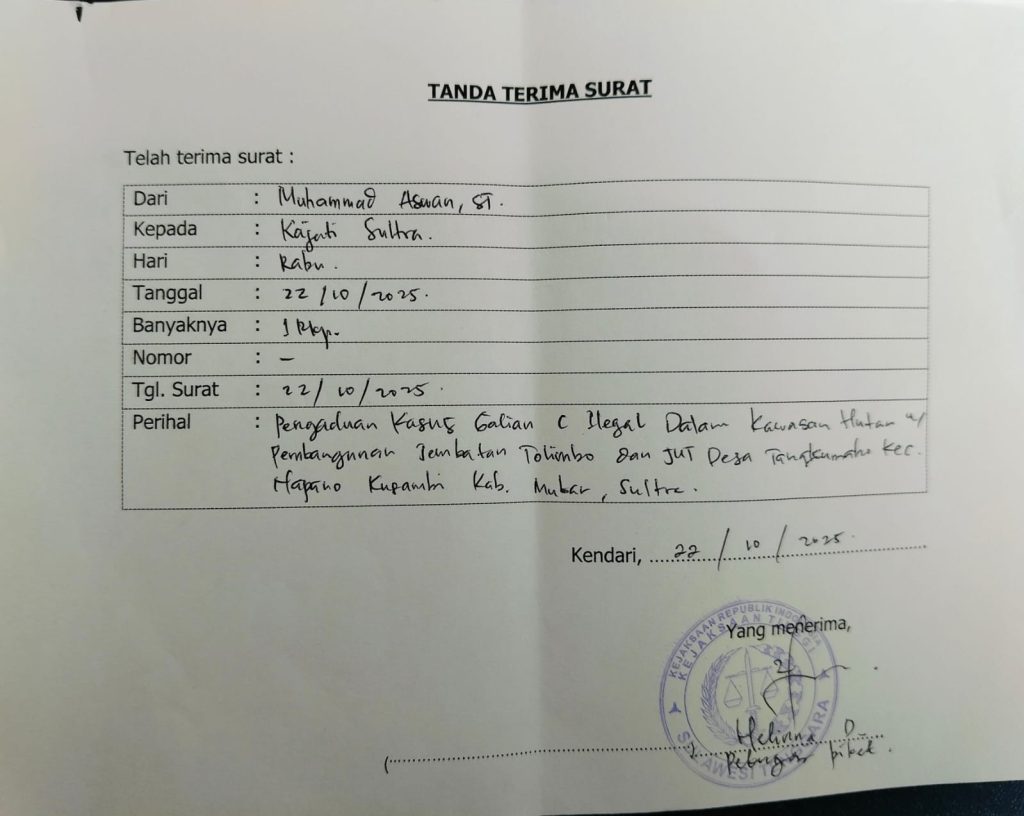 TANDA TERIMA SURAT
Telah terima surat :
Dari : Muhammad Aswan, ST.
Kepada : Kajati Sultra.
Hari : Rabu.
Tanggal : 22/10/2025.
Banyaknya : 1 Rkp.
Nomor : –
Tgl. Surat : 22/10/2025.
Perihal : Pengaduan Kasus Galian C Ilegal Dalam Kawasan Hutan u/
Pembangunan Jembatan Tolimbo dan JUT Desa Tangkumaho Kec.
Napano Kusambi Kab. Mubar, Sultra.
Kendari, 22/10/2025.
KEJAKSAAN REPUBLIK INDONESIA
KEJAKSAAN TINGGI
Yang menerima,
Helinna D.
Petugas piket.
SULAWESI TENGGARA